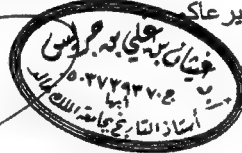 ير عاكـ
غيثان بن علي بن جريس
ج ٠٥٠٣٧٢٩٣٧
أبها
أستاذ التاريخ بجامعة الملك خالد